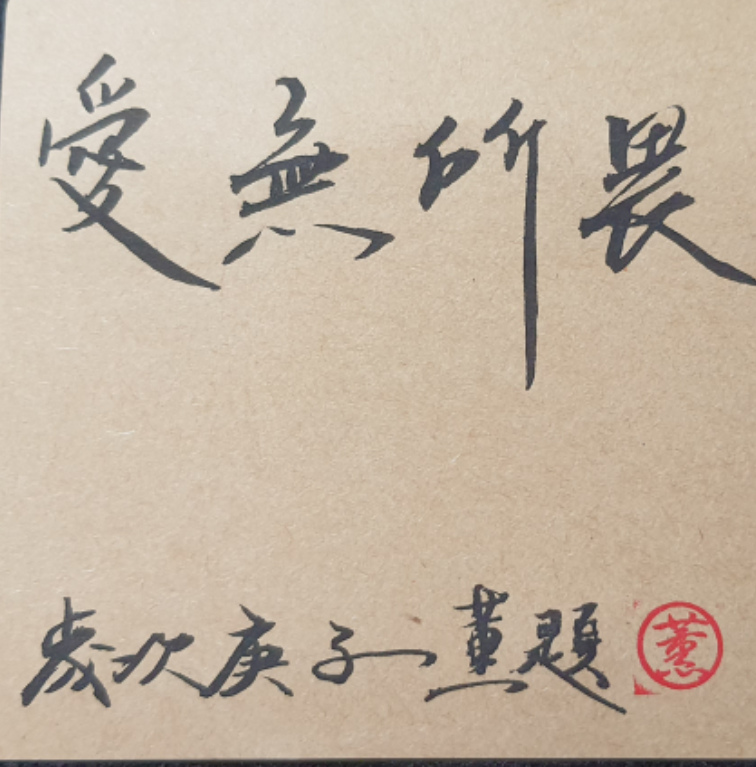 愛無所畏
歲次庚子薰題
薰